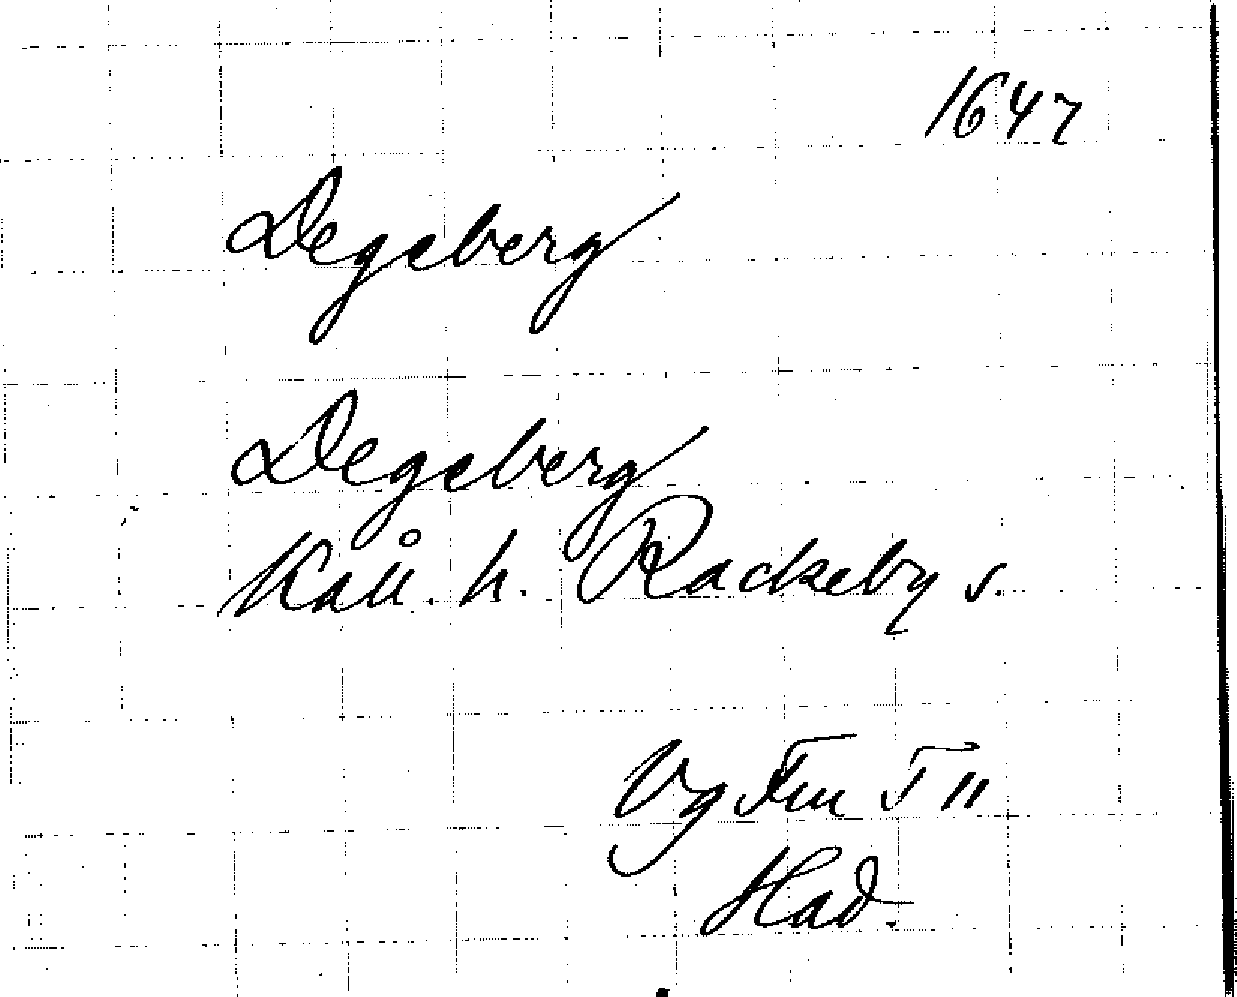 1647
Degeberg
Degeberg
Kåll. h. Rackeby s.
Vg Fm I 11
Had.